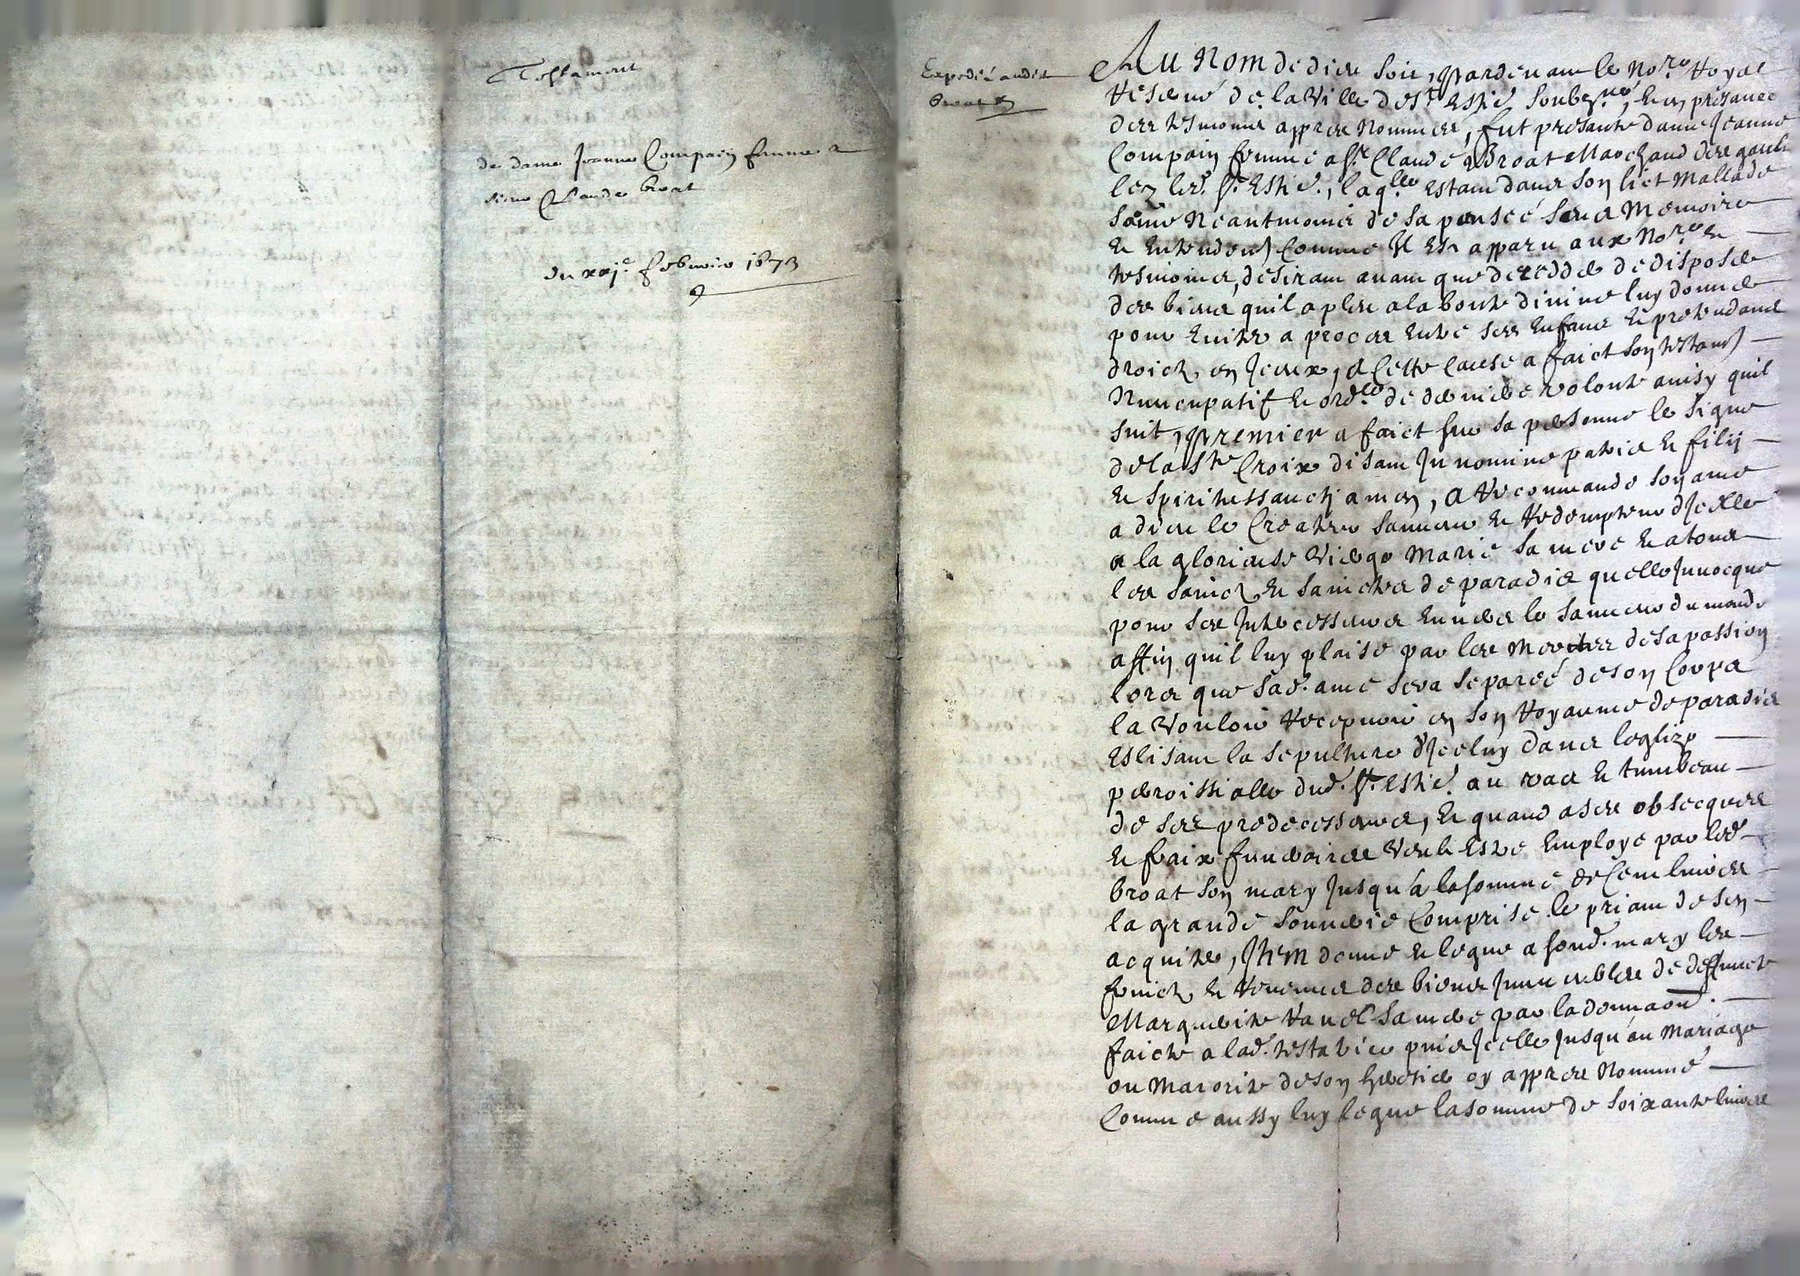 Testament
de dame Jeanne Compain femme a
sieur Claude broat
du xxje febvrier 1673
Expedié audit
broat
Au Nom de dieu soit, Pardevant le Nore Royal
Reservé de la Ville de St Estne soubzné, & en presance
des tesmoins appres Nommés, fut presante dame Jeanne
Compain femme a Sr Claude Broat Marchand
lez led. St Estne, laqlle estant dans son lict Mallade
saine Neantmoins de sa pensée sens Memoire
et entendemt comme Il est apparu aux Nore et
tesmoins, desirant avant que deceddé de disposer
des biens quil a pleu a la bonte divine luy donner
pour eviter a proces entre ses enfans et pretendans
droictz en Iceux, a Cette cause a faict son testamt
Nuncupatif et ordce de derniere volonté ainsy quil
suit, Premier a faict sur sa personne le signe
de la Ste Croix disant In nomine patris et filij
et spiritussancti amen, a recommandé son ame
a dieu le Createur sauveur et redempteur d'Icelle
a la glorieuse Vierge Marie sa mere et a tous
les sainctz et sainctes de paradis quelle Invocque
pour ses Intercesseurs envers le sauveur du monde
affin quil luy plaise par les merites de sa passion
lors que sad. ame sera separée de son Corps
la Vouloir recepvoir en son Royaume de paradis
Eslisant la sepulture d'Iceluy dans leglize
parroissialle dud. St Estne. au vas et tumbeau
de ses predecesseurs, et quand a ses obsecques
et fraix funeraires Veut Estre Employé par led.
broat son mary Jusqu'a la somme de Cent livres
la grande sonnerie Comprise le priant de sen
acquiter, Item donne et legue a sond. mary les
fruictz et revenus des biens Immeubles de deffuncte
Marguerite Ravel sa mere par la donnaon.
faicte a lad. testatrice puis Icelle Jusqu'au Mariage
ou Majorité de son heritier cy appres Nommé
Comme aussy luy legue la somme de soixante livres